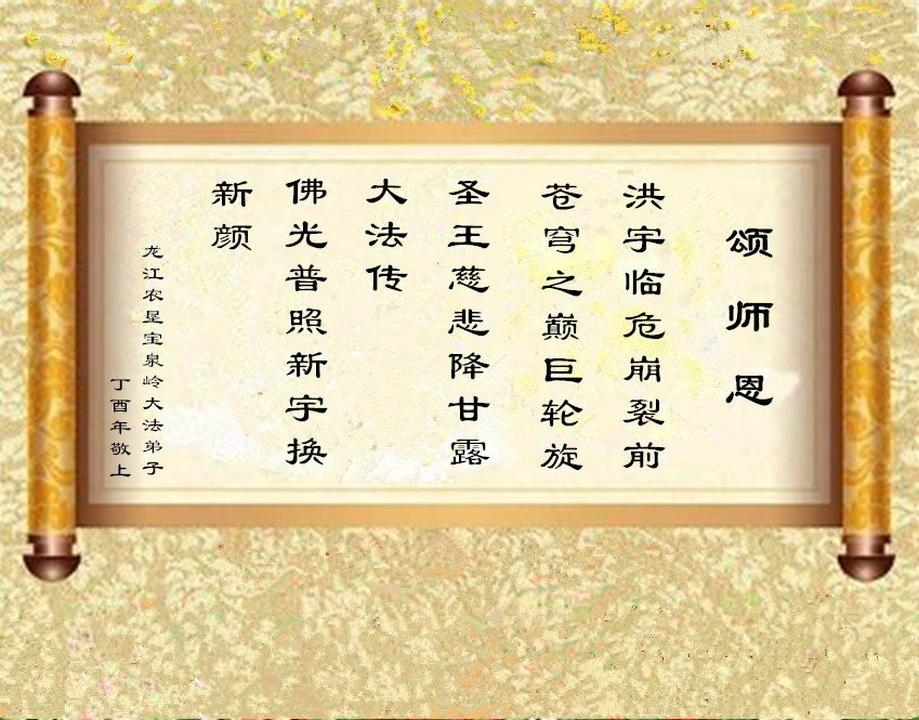 颂师恩
洪宇临危崩裂前
苍穹之巅巨轮旋
圣王慈悲降甘露
大法传
佛光普照新宇换
新颜
龙江农垦宝泉岭大法弟子
丁酉年敬上